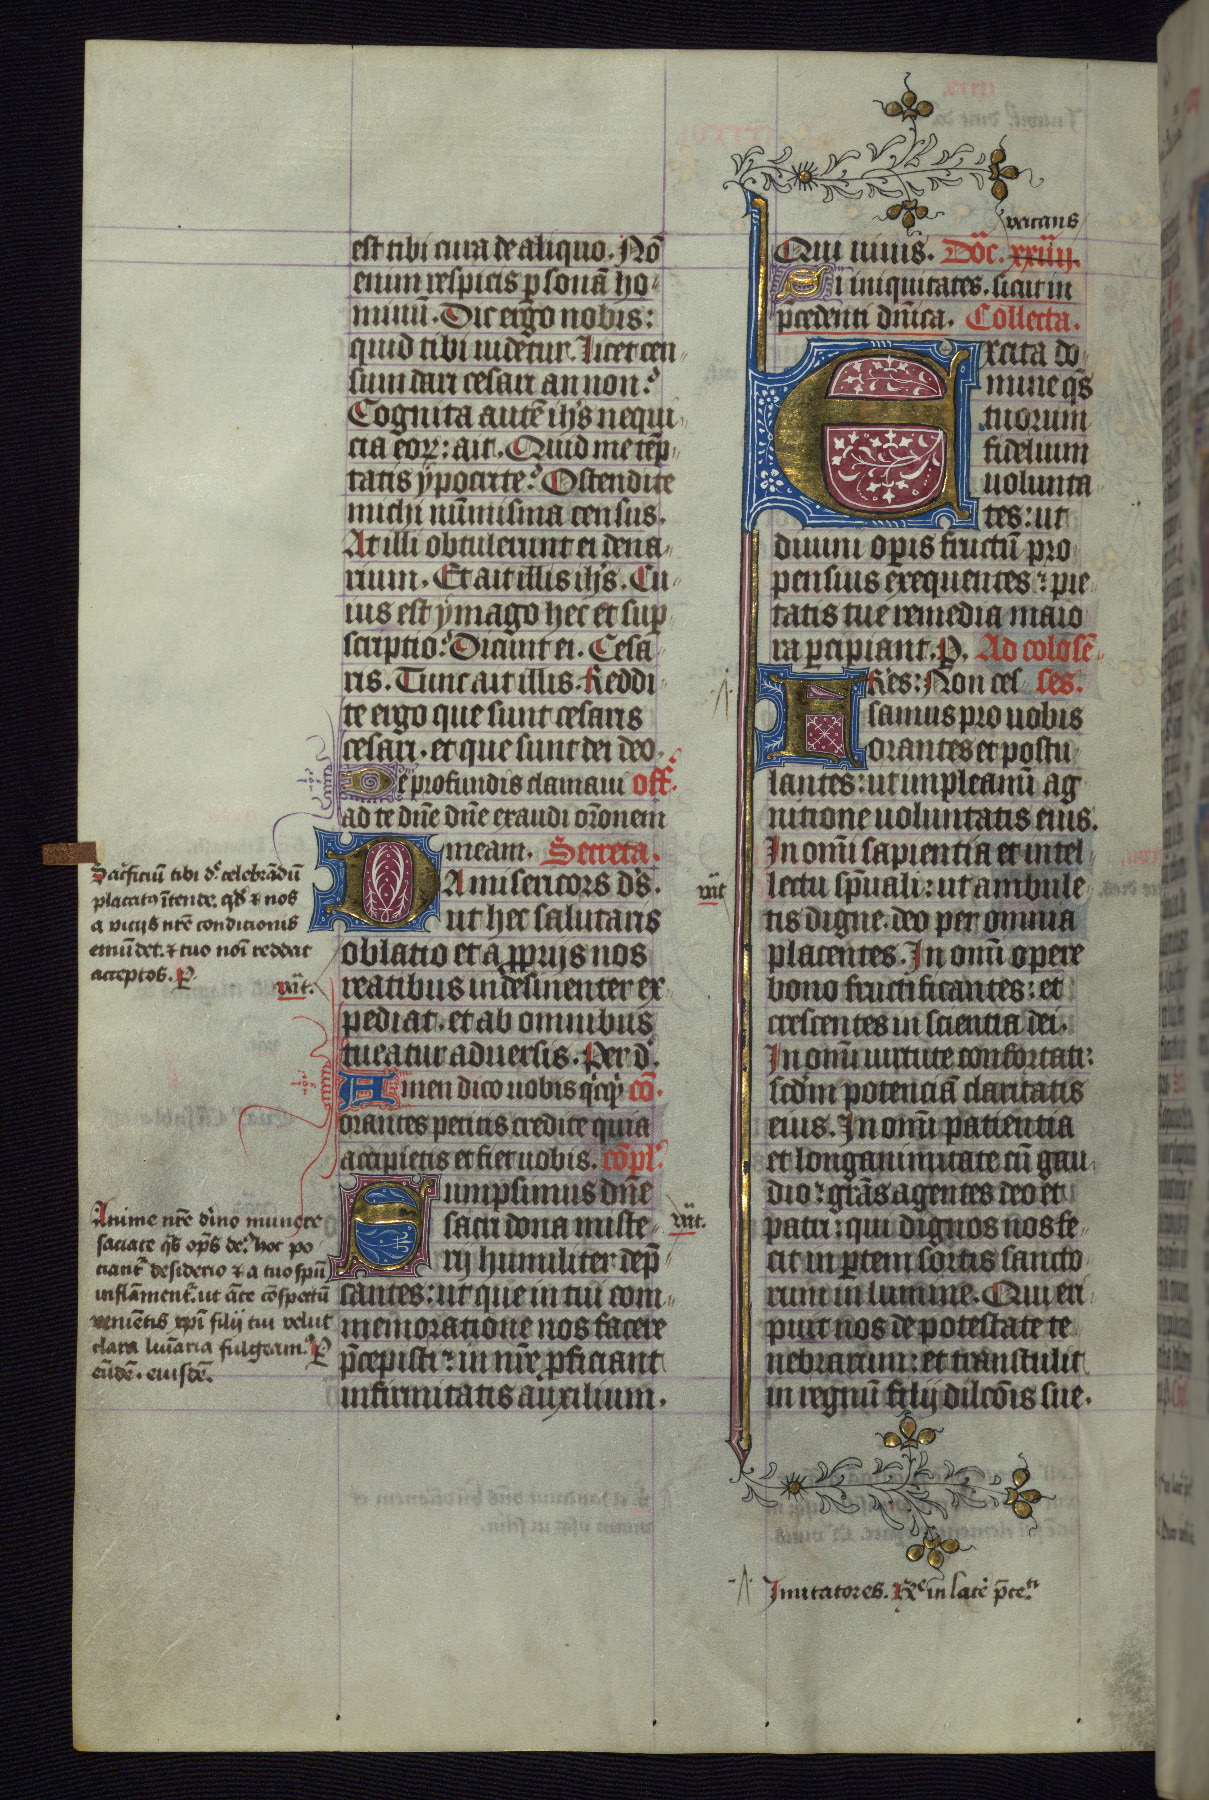 est tibi cura de aliquo. Nō
enim respicis p̱sonā ho-
minū. Dic ergo nobis:
quid tibi uidetur. Licet cen-
sum dari cesari an non?
Cognita autē ih̄s nequi-
cia eoꝝ: ait. Quid me tēp-
tatis ypocrite? Ostendite
michi nūmisma census.
At illi obtulerunt ei dena-
rium. Et ait illis ih̄s. Cu-
ius est ymago hec et sup̱
scriptio? Dicunt ei. Cesa-
ris. Tunc ait illis. Reddi-
te ergo que sunt cesaris
cesari. et que sunt dei deo.
De profundis clamaui off̄.
ad te dn̄e dn̄e exaudi or̄onem
meam. Secreta.
DA misericors d̄s.
ut hec salutaris
oblatio et a ꝓprijs nos
reatibus indesinenter ex-
pediat. et ab omnibus
tueatur aduersis. Per d̄.
Amen dico uobis qͥcqͥd cō.
orantes petitis credite quia
accipietis et fiet uobis. cōpl̄.
Sumpsimus dn̄e
sacri dona miste-
rij humiliter dep̄-
cantes: ut que in tui com-
memoratione nos facere
p̄cepisti: in nr̄e ꝓficiant
infirmitatis auxilium.
Sacͥficiū tibi d̄e celebrādū
placatꝰ ītende. qs̄ & nos
a vicijs nr̄e conditionis
emūdet. & tuo noī reddat
acceptos. P̱
vat.
Anime nr̄e dīno munere
saciate qs̄ op̄s de9 hoc po
tiant᷑ desiderio & a tuo spū
inflāment᷑. ut āte cōspectū
venientis xp̄i filij tui velut
clara luīaria fulgeam9. P̱
eūdē. eiusdē.
vat.
vacans
Qui uiuis. Dōc. xxiiij.
Si iniquitates. sicut in
p̄cedenti dn̄ica. Collecta.
Excita do-
mine qs̄
tuorum
fidelium
uolunta-
tes: ut
diuini op̱is fructū pro-
pensius exequentes: pie-
tatis tue remedia maio-
ra p̱cipiant. P̱. Ad colosē-
FRēs: Non ces- ses.
samus pro uobis
orantes et postu-
lantes: ut impleamī ag-
nitione uoluntatis eius.
In omī sapientia et intel-
lectu sp̄uali: ut ambule-
tis digne. deo per omnia
placentes. In omī opere
bono fructificantes: et
crescentes in scientia dei.
In omī uirtute confortati:
scd̄m potenciā claritatis
eius. In omī patientia
et longanimitate cū gau-
dio: grās agentes deo et
patri: qui dignos nos fe-
cit in p̱tem sortis sancto-
rum in lumine. Qui eri-
puit nos de potestate te-
nebrarum: et transtulit
in regnū filij dilcōis sue.
vat
Imitatores. Re in latē p̄ce.ti